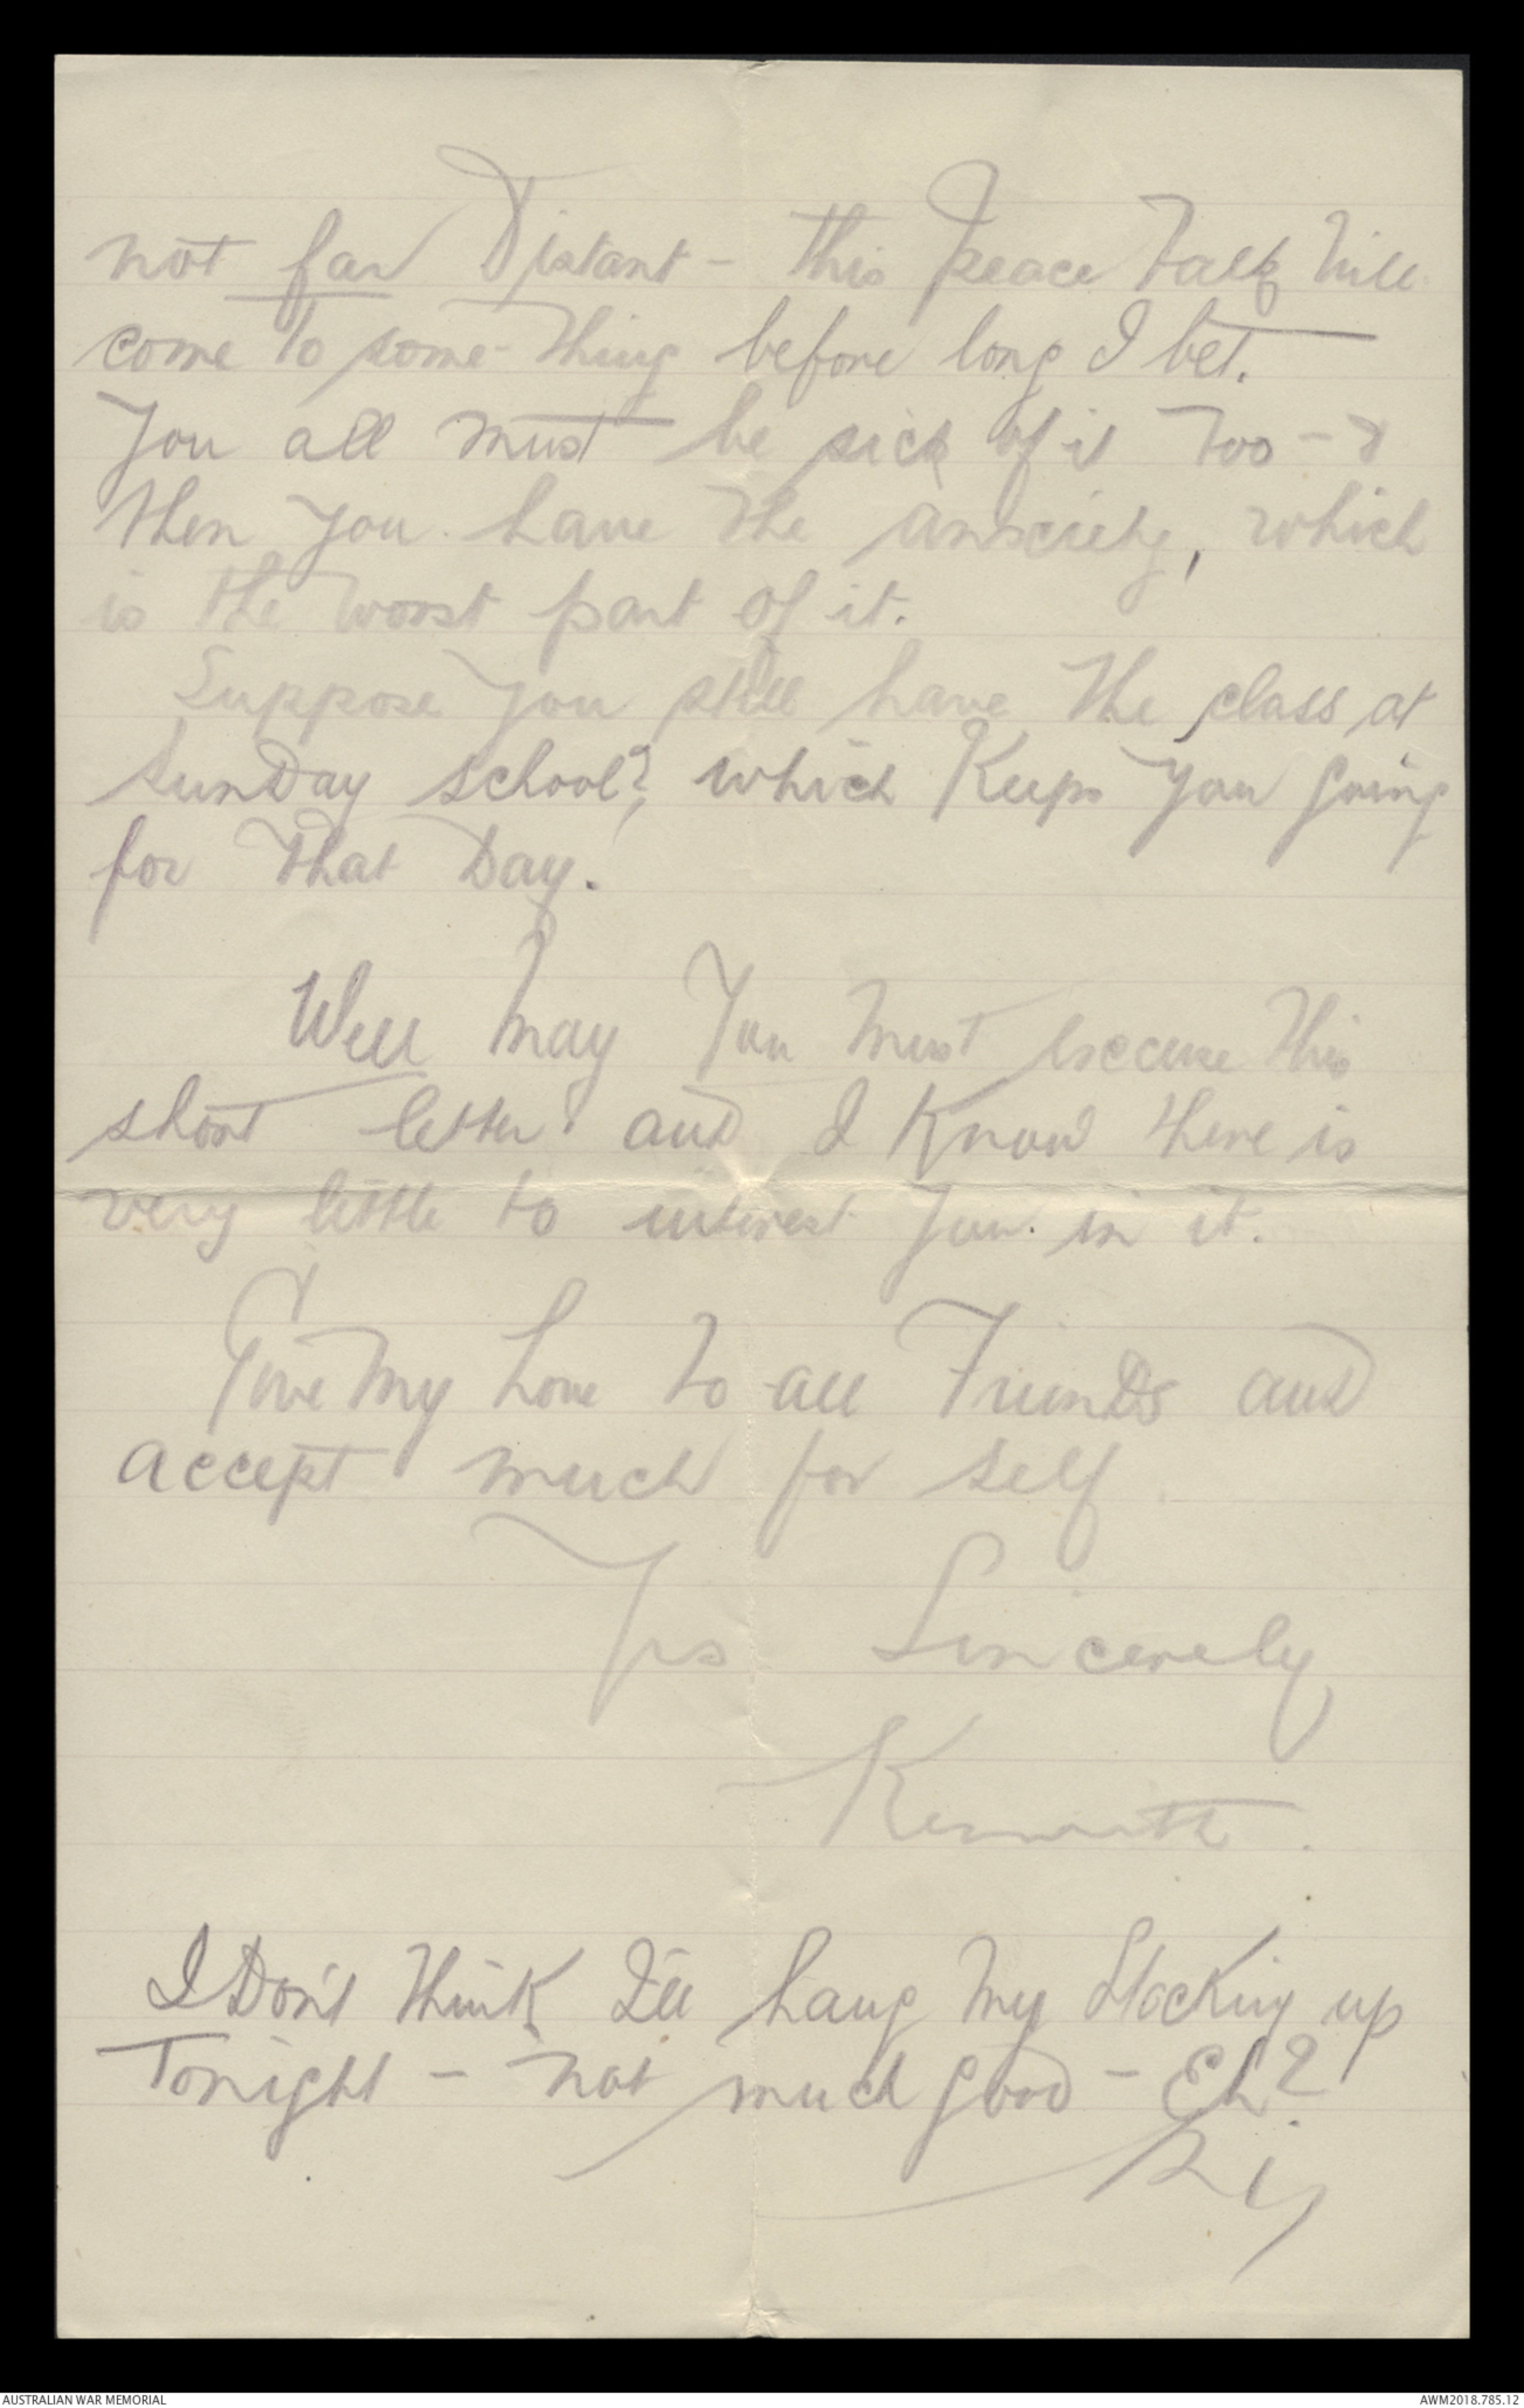 not far Distant - this Peace Talk will
come to some-thing before long I bet.
You all must be sick of it too - &
then you have the anxiety, which
is the worst part of it.
Suppose you still have the class at
SunDay school?, which Keeps you going
for that Day.
Well May You must excuse this
short letter and I Know there is
very little to interest you in it.
Give my Love to all FrienDs and
accept much for self.
Yrs Sincerely
Kenneth.
I Don't think I'll hang my stocking up
Tonight - not much good - Eh?
AUSTRALIAN WAR MEMORIAL
AWM2018.785.12